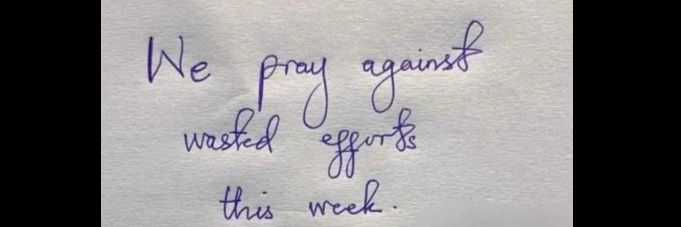 We pray against
wasted efforts
this week.